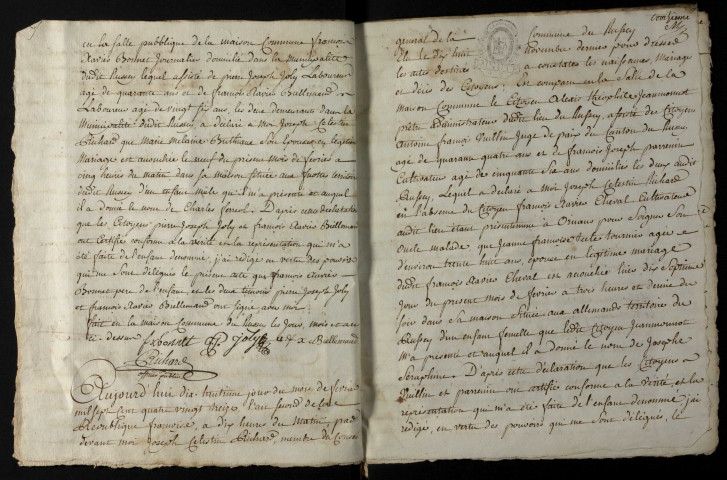 en la salle publique de la maison Commune francois
Xavier Bonnet Journalier domicilié dans la municipalité
dudit Russey lequel assisté de pierre Joseph Joly Laboureur
agé de quarante ans et de françois Xavier Vuillemin
Laboureur agé de vingt six ans, les deux demeurants dans la
Municipalité dudit Russey, a déclaré a Moi Joseph Celestin
Richard que Marie Melanie son Epouse en legitime
Mariage est accouchée le neuf du présent mois de fevrier a
cinq heures du matin dans sa maison située aux territoire
dudit Russey d'un enfant Mâle qu'il m'a présenté et auquel
il a donné le nom de Charles Joseph. D'après cette déclaration
que les Citoyens pierre Joseph Joly et françois Xavier Vuillemin
ont Certifié conforme a la vérité et la représentation qui m'a
été faite de l'enfant dénommé, j'ai rédigé en vertu des pouvoirs
qui me sont délégués le présent acte que francois Xavier
Bonnet pere de l'enfant et les deux témoins pierre Joseph Joly
et francois Xavier ont signé avec moi.
fait en la maison Commune du Russey les Jour, mois et an
ci dessus
Joly
Richard
officier public
Aujourd'huy dix huitieme jour du mois de fevrier
mil sept Cent quatre vingt treize l'an second de la
République françoise, a dix heures du Matin, par
devant moi Joseph Celestin Richard membre du Conseil
général de la Commune du Russey
Elu le dix huit Novembre dernier pour dresser
les actes destinés a constater les naissances, Mariages
et décès des Citoyens. Est comparu en la Salle de la
Maison Commune le Citoyen Alexis théophile Jeannenot
pretre administrateur dudit lieu du Russey, assisté des Citoyens
Antoine françois Vuillin Juge de paix du Canton du Russey
agé de quarante quatre ans et de françois Joseph parrenin
Cultivateur agé de cinquante six ans domiciliés les deux audit
Russey, Lequel a déclaré a moi Joseph Celestin Richard
en l'absence du Citoyen françois Xavier Cheval Cultivateur
audit lieu étant présentement a Ornans pour Soigner Son
Oncle malade que Jeanne françoise tournier agée
d'environ trente huit ans, épouse en légitime mariage
dudit francois Xavier Cheval est accouchée hier dix Septieme
jour du present mois de fevrier a trois heures et demie du
soir dans sa maison située aux allemands territoire du
Russey d'un enfant femelle que ledit Citoyen Jeannenot
M'a présenté et auquel il a donné le nom de Josephe
Seraphine. D'après cette déclaration que les Citoyens
Vuillin et parrenin ont certifié conforme a la vérité et la
représentation qui m'a été faite de l'enfant dénommé j'ai
rédigé, en vertu des pouvoirs qui me sont délégués, le